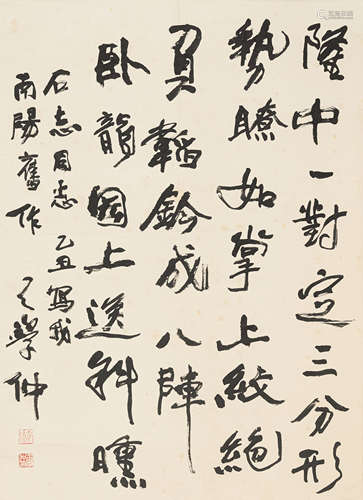 隆中一對定三分形
勢瞭如掌上紋絕
員韜鈐成八陣
臥龍圖上送斜曛
石志同志 乙丑寫我
南陽舊作 王學仲